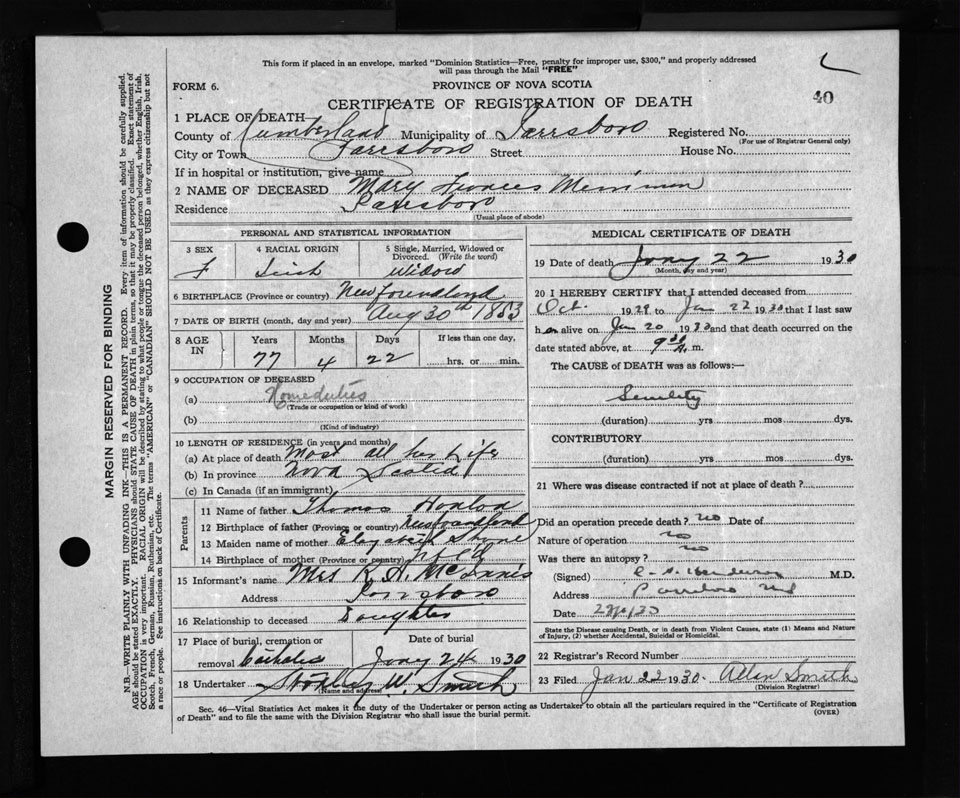 This form if placed in an envelope, marked "Dominion Statistics—Free, penalty for improper use, $300," and properly addressed
will pass through the Mail "FREE"
FORM 6.
PROVINCE OF NOVA SCOTIA
CERTIFICATE OF REGISTRATION OF DEATH
40
1 PLACE OF DEATH
County of Cumberland Municipality of Parrsboro Registered No.
(For use of Registrar General only)
City or Town Parrsboro Street House No.
If in hospital or institution, give name
2 NAME OF DECEASED Mary Frances Merriman
Residence Parrsboro
(Usual place of abode)
PERSONAL AND STATISTICAL INFORMATION
3 SEX 4 RACIAL ORIGIN 5 Single, Married, Widowed or
Divorced. (Write the word)
F Irish Widow
6 BIRTHPLACE (Province or country) Newfoundland
7 DATE OF BIRTH (month, day and year) Aug 30th 1853
8 AGE IN Years Months Days If less than one day,
77 4 22 hrs. or min.
9 OCCUPATION OF DECEASED
(a) Homeduties
(Trade or occupation or kind of work)
(b)
(Kind of industry)
10 LENGTH OF RESIDENCE (in years and months)
(a) At place of death Most all her Life
(b) In province Nova Scotia
(c) In Canada (if an immigrant)
Parents
11 Name of father Thomas
12 Birthplace of father (Province or country) Newfoundland
13 Maiden name of mother Elizabeth
14 Birthplace of mother (Province or country) Nfld
15 Informant's name Mrs K. A. McInnis
Address Parrsboro
16 Relationship to deceased Daughter
17 Place of burial, cremation or Date of burial
removal Catholic Jany 24 1930
18 Undertaker Stanley W. Smith
(Name and address)
MEDICAL CERTIFICATE OF DEATH
19 Date of death Jany 22 1930
(Month, day and year)
20 I HEREBY CERTIFY that I attended deceased from
Oct 1929 to Jan 22 1930 that I last saw
her alive on Jan 20 1930 and that death occurred on the
date stated above, at 9 30 A. m.
The CAUSE of DEATH was as follows:—
Senility
(duration) yrs mos dys.
CONTRIBUTORY
(duration) yrs mos dys.
21 Where was disease contracted if not at place of death?
Did an operation precede death? no Date of
Nature of operation no
Was there an autopsy? no
(Signed) M.D.
Address Parrsboro NS
Date
State the Disease causing Death, or in death from Violent Causes, state (1) Means and Nature
of Injury, (2) whether Accidental, Suicidal or Homicidal.
22 Registrar's Record Number
23 Filed Jan 22 1930. Allan Smith
(Division Registrar)
Sec. 46—Vital Statistics Act makes it the duty of the Undertaker or person acting as Undertaker to obtain all the particulars required in the "Certificate of Registration
of Death" and to file the same with the Division Registrar who shall issue the burial permit.
(OVER)
MARGIN RESERVED FOR BINDING
N.B.—WRITE PLAINLY WITH UNFADING INK—THIS IS A PERMANENT RECORD. Every item of information should be carefully supplied.
AGE should be stated EXACTLY. PHYSICIANS should STATE CAUSE OF DEATH in plain terms, so that it may be properly classified. Exact statement of
OCCUPATION is very important. RACIAL ORIGIN will be described by stating to what people or tongue the deceased person belonged, whether English, Irish,
Scotch, French, German, Russian, Ruthenian, etc. The terms "AMERICAN" or "CANADIAN" SHOULD NOT BE USED as they express citizenship but not
a race or people. See instructions on back of Certificate.